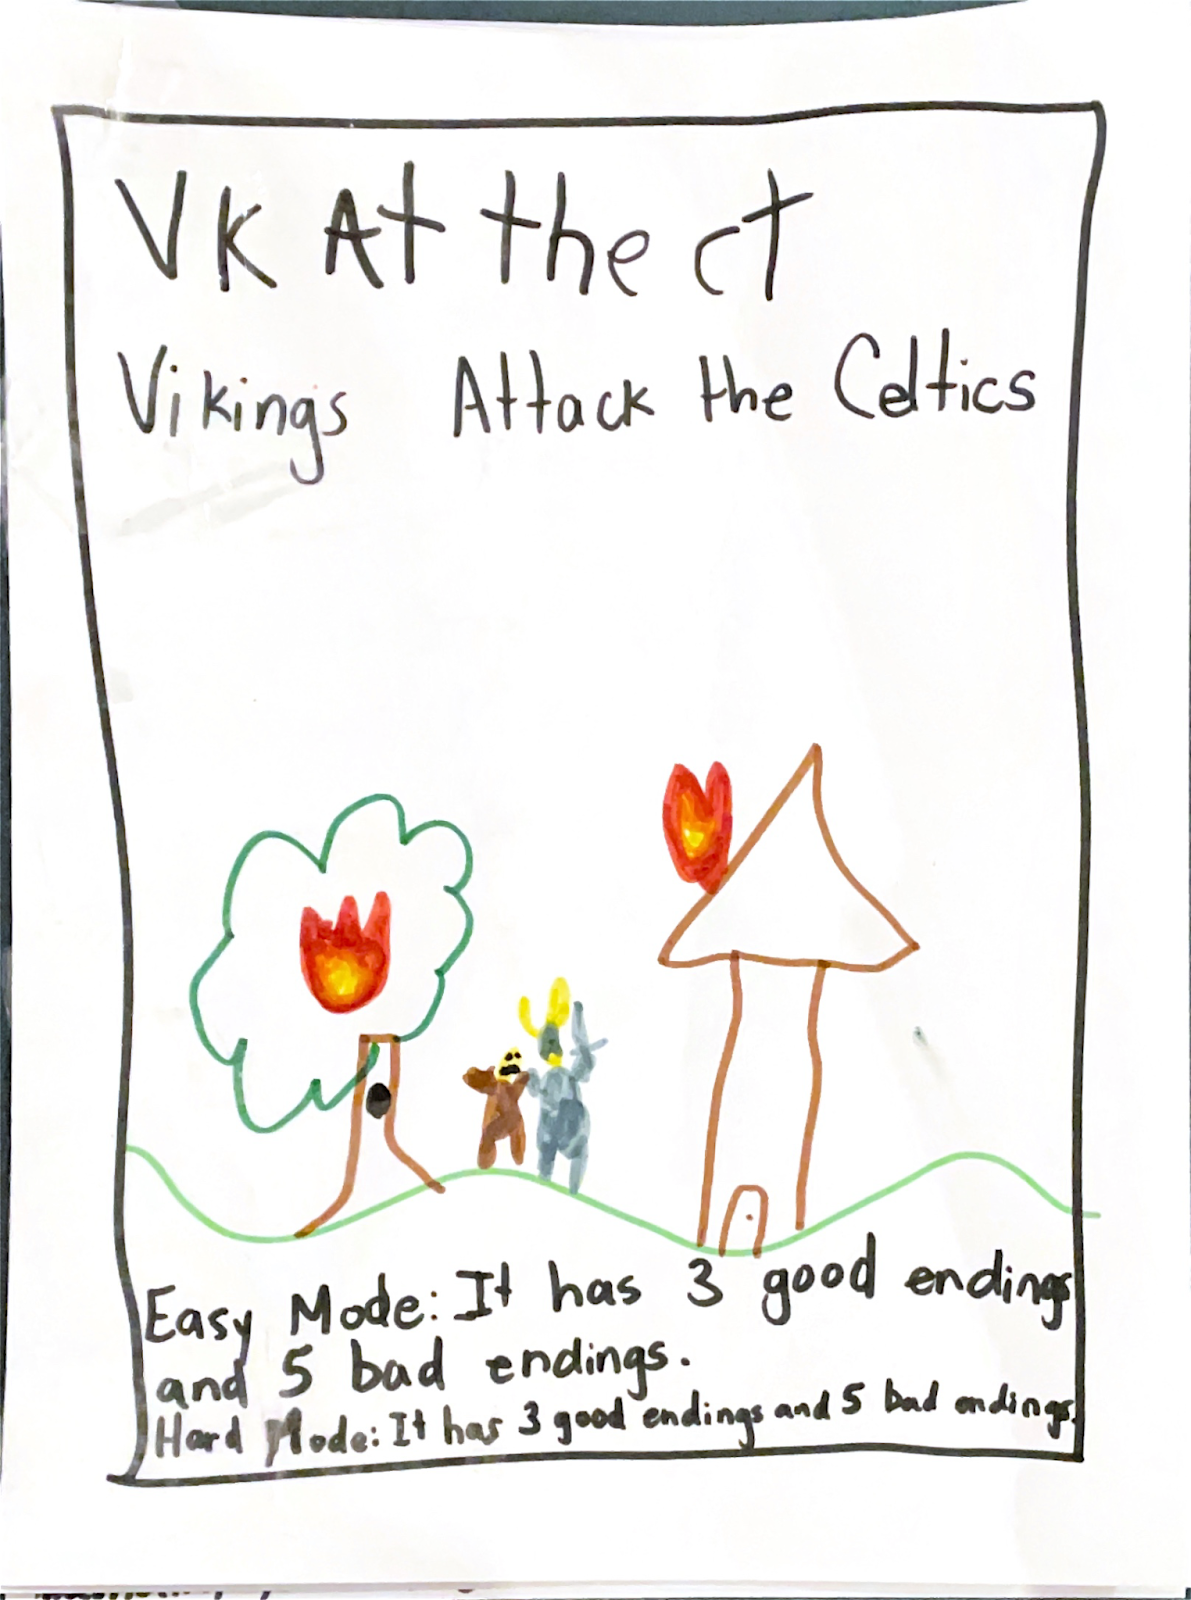 VK At the ct
Vikings Attack the Celtics
Easy Mode: It has 3 good endings
and 5 bad endings.
Hard Mode: It has 3 good endings and 5 bad endings.